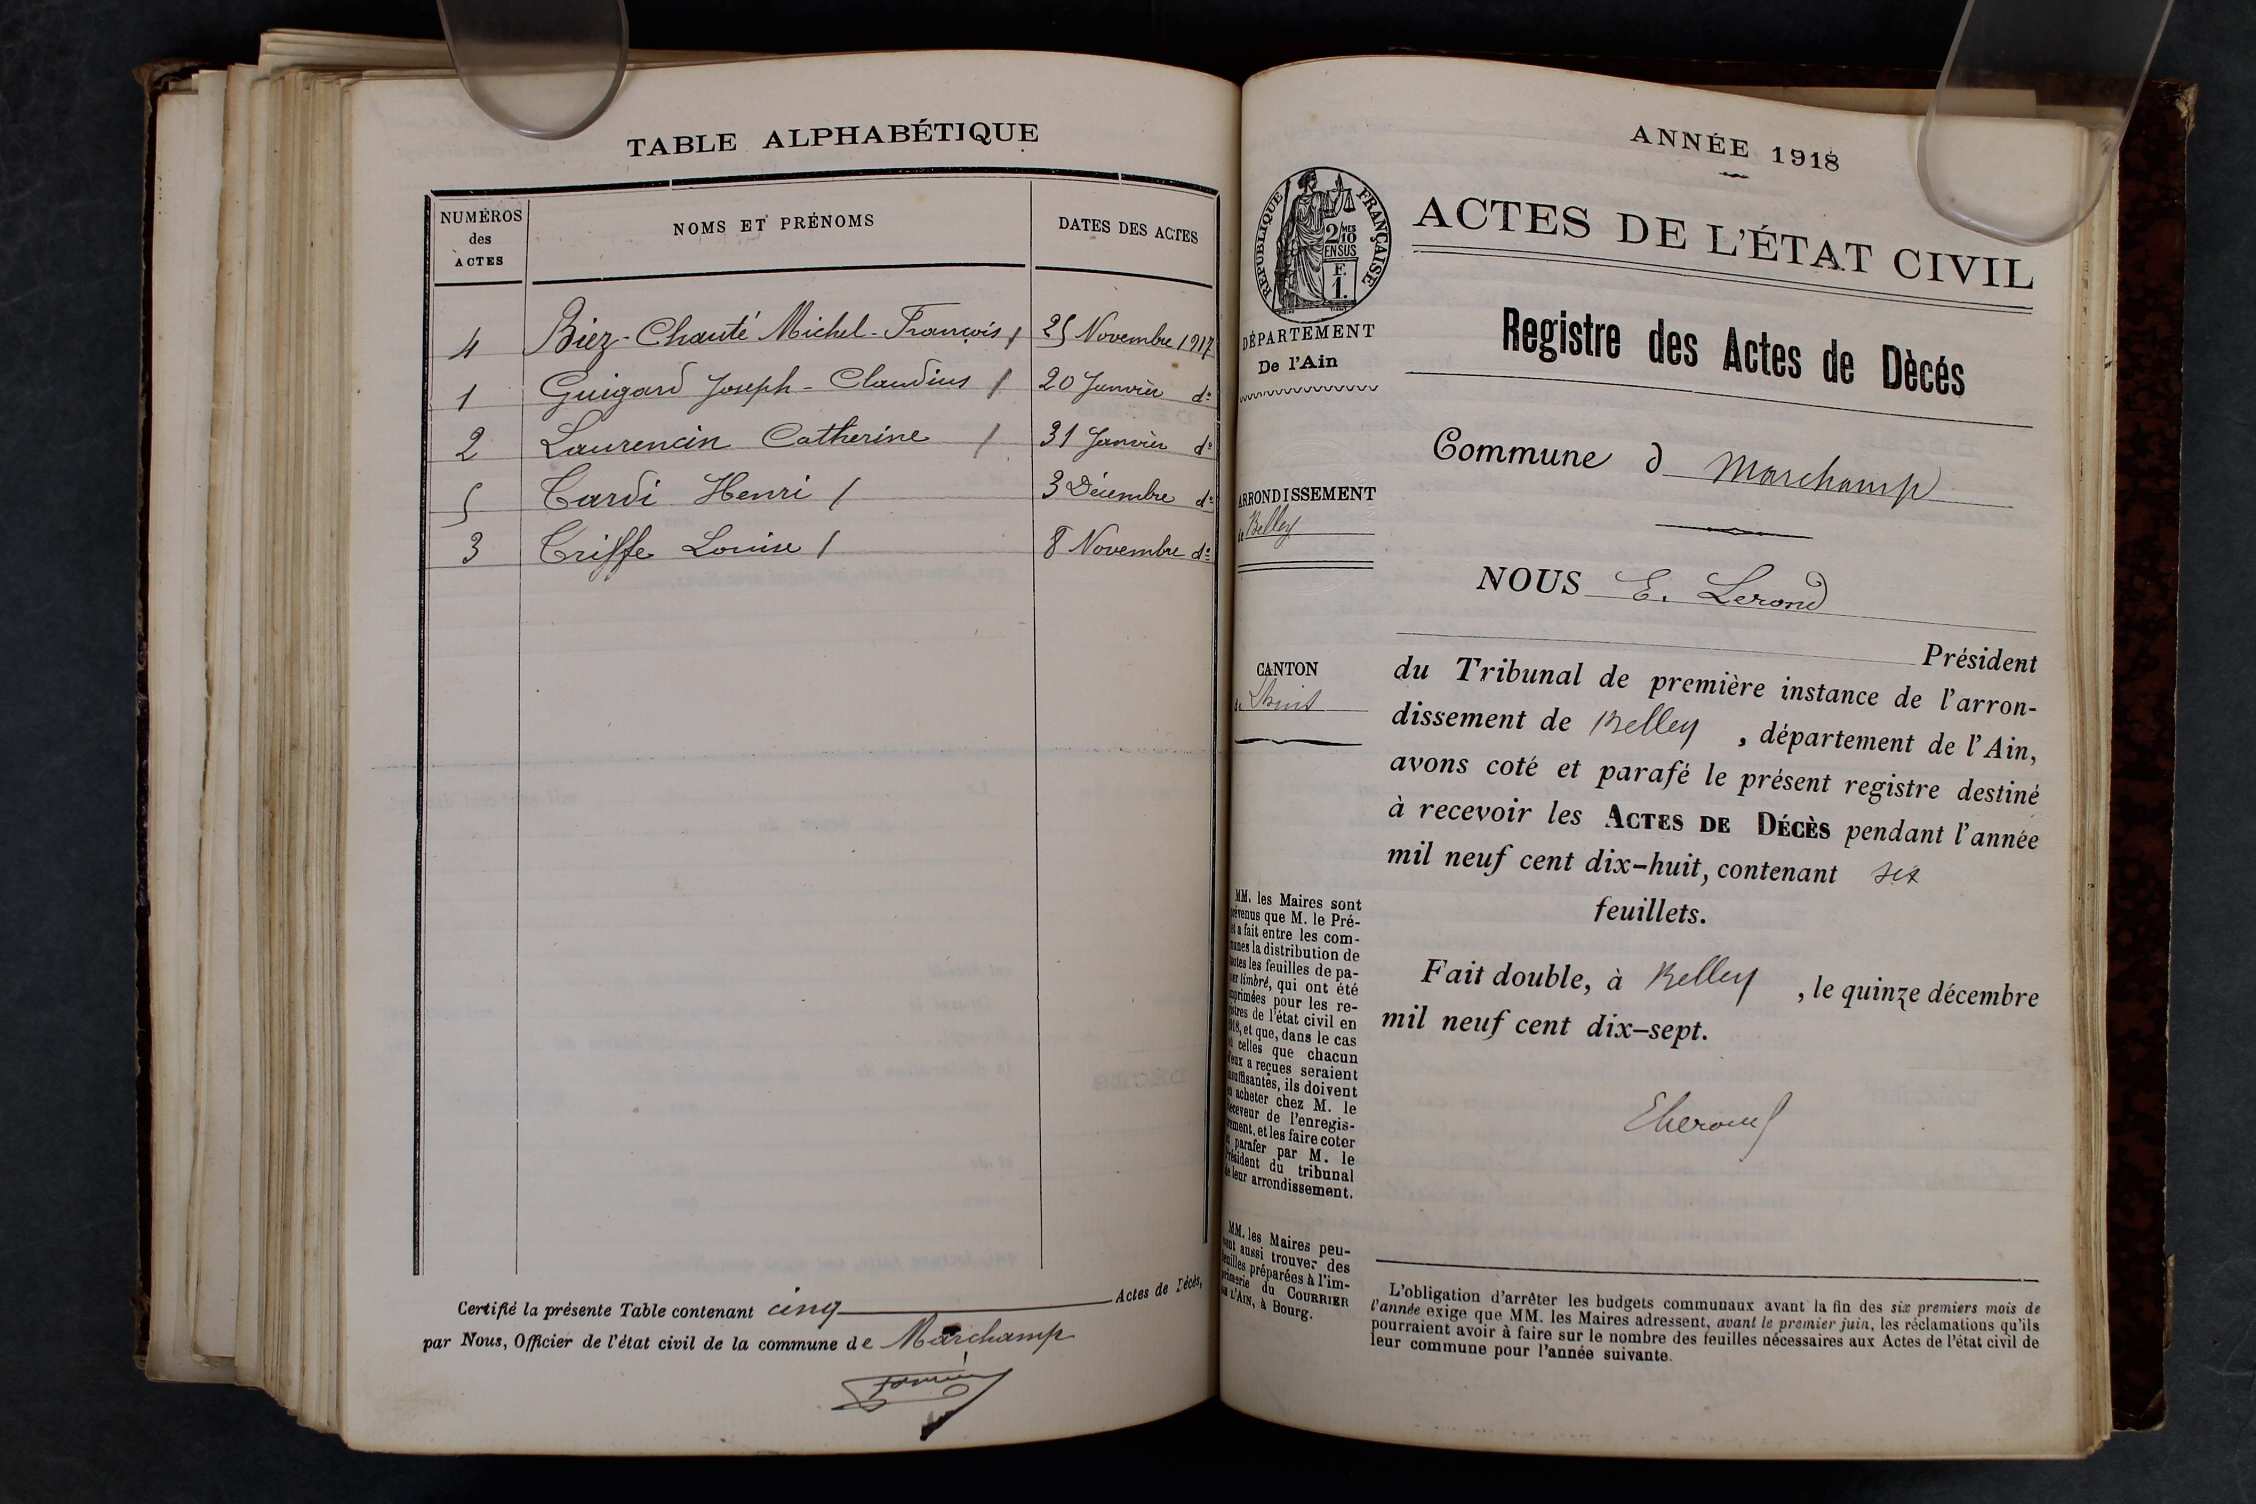 TABLE ALPHABÉTIQUE
NUMÉROS
des
ACTES
NOMS ET PRÉNOMS
DATES DES ACTES
4 Biez-Chanté Michel-François 25 Novembre 1917
1 Guigard Joseph-Claudius 20 Janvier do
2 Laurencin Catherine 31 Janvier do
5 Tardi Henri 3 Décembre do
3 Triffe Louise 8 Novembre do
Certifié la présente Table contenant cinq Actes de Décés,
par Nous, Officier de l'état civil de la commune de Marchamp
ANNÉE 1918
RÉPUBLIQUE FRANÇAISE
2/10 MES
EN SUS
F.
1.
ACTES DE L'ÉTAT CIVIL
DÉPARTEMENT
De l'Ain
Registre des Actes de Dècés
Commune d Marchamp
ARRONDISSEMENT
de Belley
NOUS E. Lerond
Président
CANTON
de
du Tribunal de première instance de l'arron-
dissement de Belley, département de l'Ain,
avons coté et parafé le présent registre destiné
à recevoir les ACTES DE DÉCÈS pendant l'année
mil neuf cent dix-huit, contenant six
feuillets.
Fait double, à Belley, le quinze décembre
mil neuf cent dix-sept.
MM. les Maires sont
prévenus que M. le Pré-
fet a fait entre les com-
munes la distribution de
toutes les feuilles de pa-
pier timbré, qui ont été
imprimées pour les re-
gistres de l'état civil en
1918, et que, dans le cas
où celles que chacun
d'eux a reçues seraient
insuffisantes, ils doivent
en acheter chez M. le
Receveur de l'enregis-
trement, et les faire coter
et parafer par M. le
Président du tribunal
de leur arrondissement.
MM. les Maires peu-
vent aussi trouver des
feuilles préparées à l'im-
primerie du COURRIER
DE L'AIN, à Bourg.
L'obligation d'arrêter les budgets communaux avant la fin des six premiers mois de
l'année exige que MM. les Maires adressent, avant le premier juin, les réclamations qu'ils
pourraient avoir à faire sur le nombre des feuilles nécessaires aux Actes de l'état civil de
leur commune pour l'année suivante.